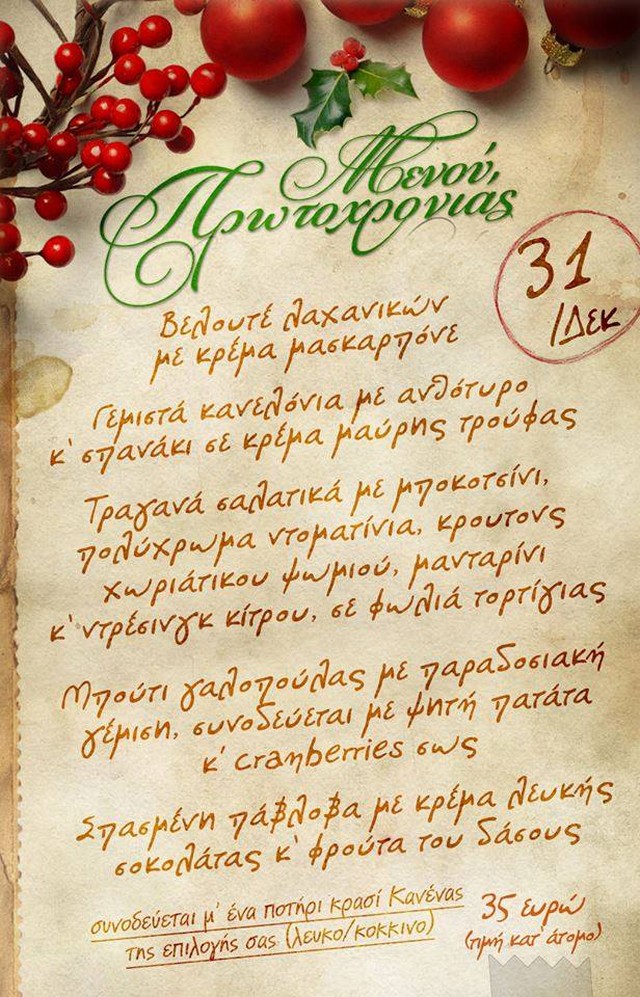 Μενού,
Πρωτοχρονιας
31
/Δεκ
Βελουτέ λαχανικών
με κρέμα μασκαρπόνε
Γεμιστά κανελόνια με ανθότυρο
κ' σπανάκι σε κρέμα μαύρης τρούφας
Τραγανά σαλατικά με μποκοτσίνι,
πολύχρωμα ντοματίνια, κρουτονς
χωριάτικου ψωμιού, μανταρίνι
κ' ντρέσινγκ κίτρου, σε φωλιά τορτίγιας
Μπούτι γαλοπούλας με παραδοσιακή
γέμιση, συνοδεύεται με ψητή πατάτα
κ' cranberries σως
Σπασμένη πάβλοβα με κρέμα λευκής
σοκολάτας κ' φρούτα του δάσους
συνοδεύεται μ' ένα ποτήρι κρασί Κανένας
της επιλογής σας (λευκο/κοκκινο)
35 ευρώ
(τιμή κατ' άτομο)